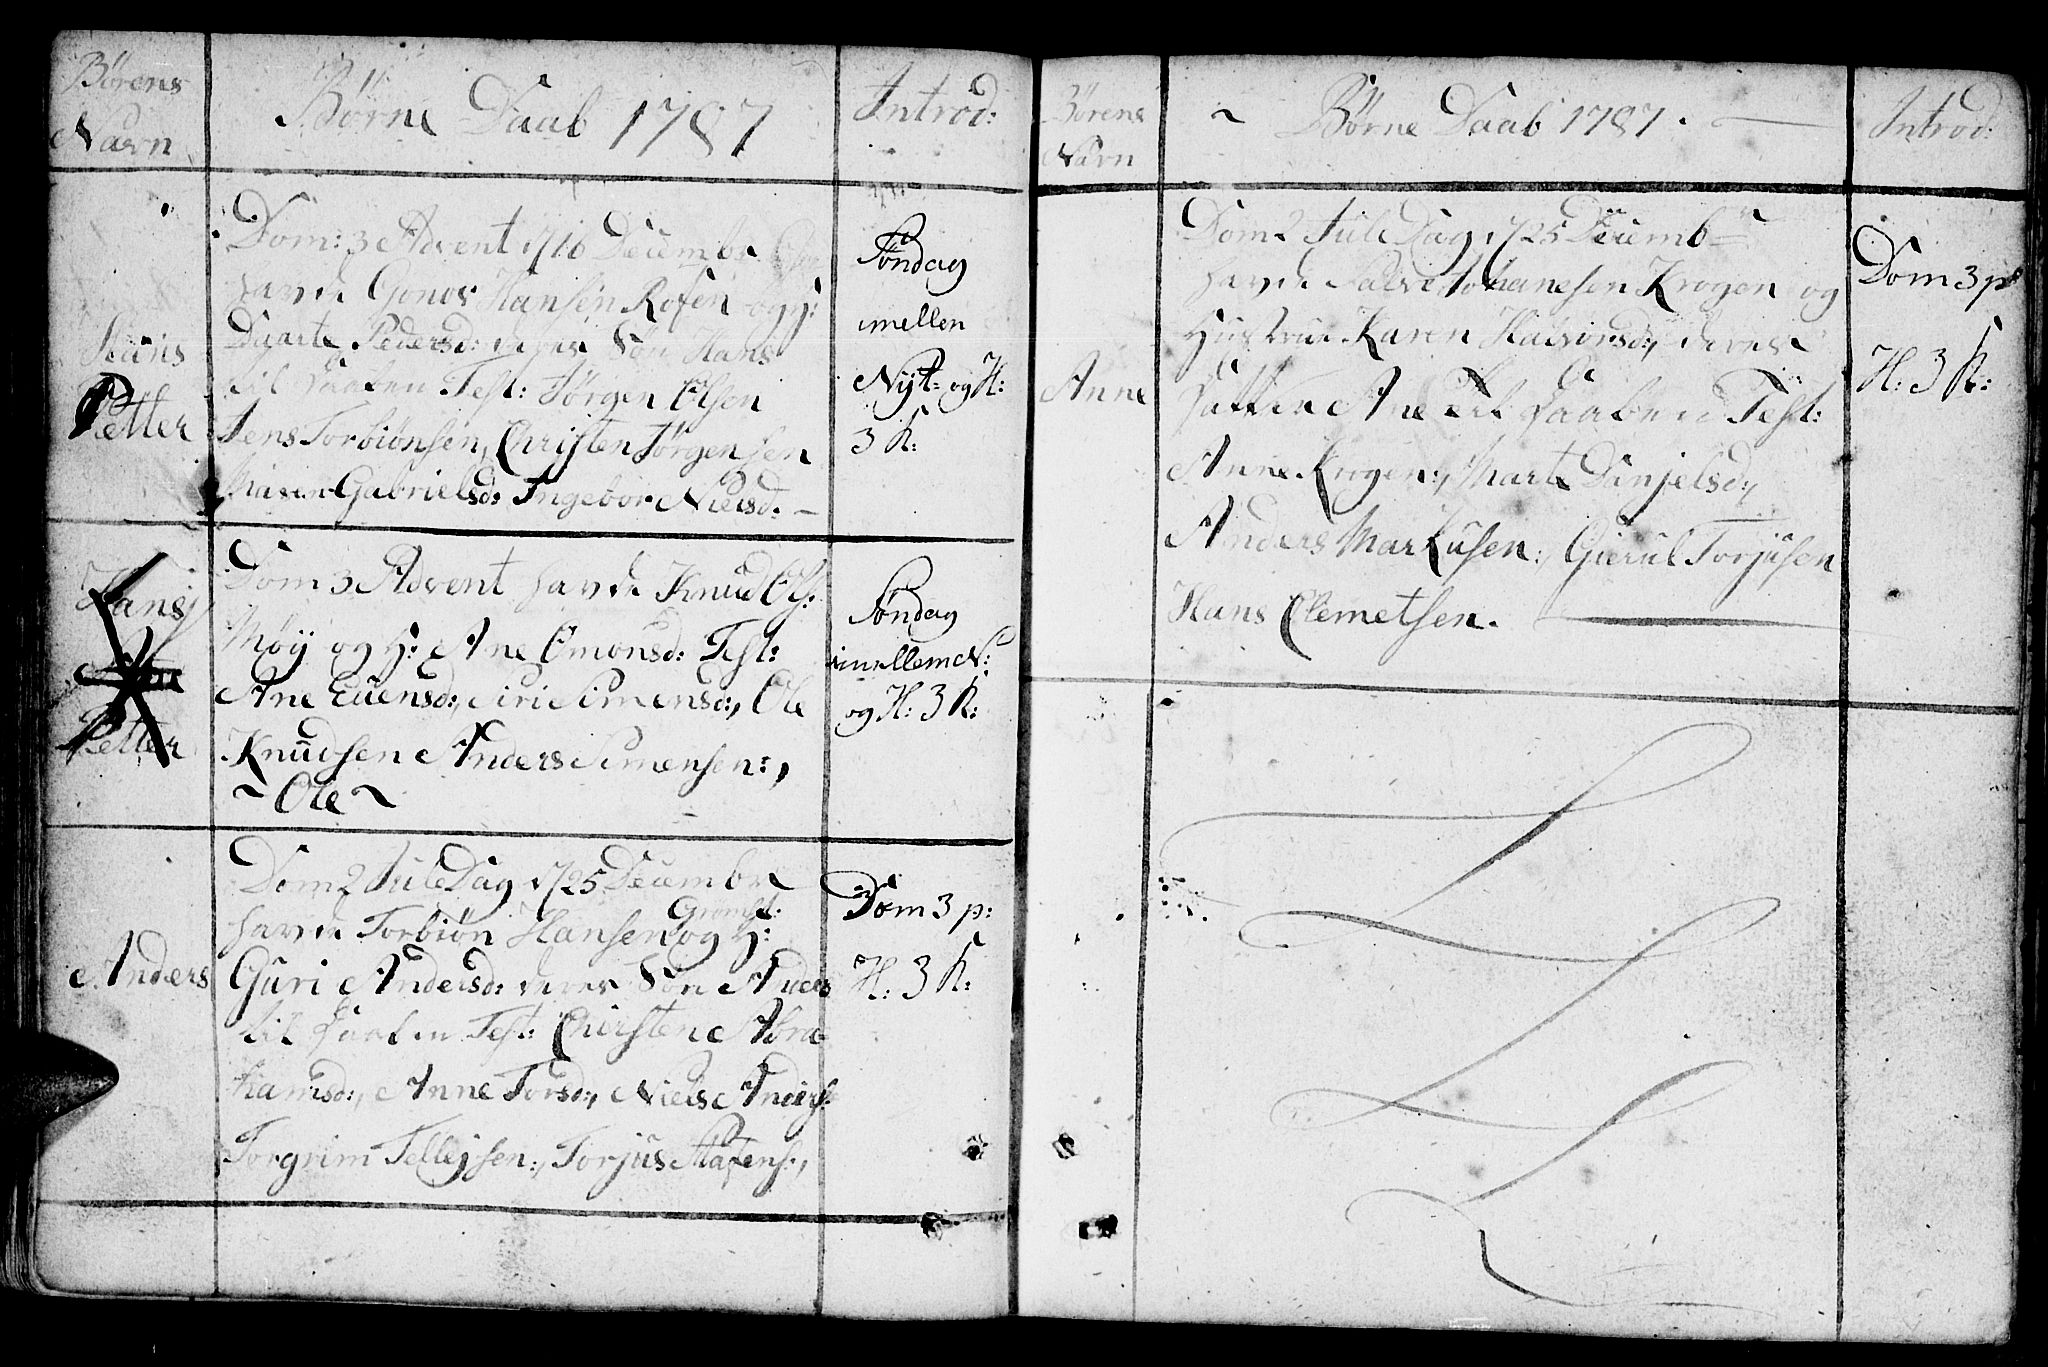 Børens
Navn
Børne Daab 1787
Introd:
Dom: 3 Advent d/16 Decembr
havde Gonor Hansen Rosen og H:
Daarte Pedersd: deres Søn Hans
til Daaben Test: Jørgen Olsen
Jens Torbiønsen, Christen Jørgensen
Maren Gabrielsd: Ingebor Nielsd. –
Hans
Petter
Søndag
imellen
Nyt: og H:
3 K:
Hans
Petter
Dom 3 Advent havde Knud Ols:
Møy og H: Ane Omonsd: Test:
Ane Euensd:, Siri Simensd:, Ole
Knudsen Anders Simensen:,
~ Ole ~
Søndag
imellem N:
og H: 3 K:
Anders
Dom 2 Jule Dag d/25 Decembr
Gromst:
havde Torbiøn Hansen og H:
Guri Andersd: deres Søn Anders
til Daaben Test: Christen Abra-
hamsd:, Anne Torsd:, Niels Anders:
Torgrim Tellejsen:, Torjus Stafens:,
Dom 3 p:
H: 3 K:
Børens
Navn
~ Børne Daab 1787. —
Introd:
Anne
Dom 2 Jule Dag d/25 Decembr
havde Salve Johanesen Krogen og
Hustrue Karen Halvorsd:, deres
Datter Ane til Daaben Test:
Anne Krogen:, Marte Dinjelsd:,
Anders Markusen:, Gierul Torjusen
Hans Clemetsen. —
Dom 3 p
H: 3 K: